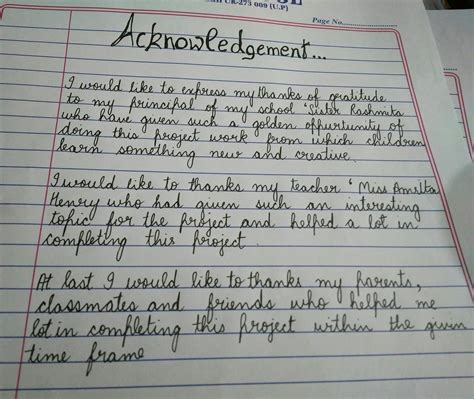 UR-275 009 (U.P)
Page No.
Acknowledgement...
I would like to express my thanks of gratitude
to my principal of my school 'Sister Rashmita
who have given such a golden oppurtunity of
doing this project work from which children
learn something new and creative.
I would like to thanks my teacher 'Miss Amrita
Henry who had given such an interesting
topic for the project and helped a lot in
completing this project.
At last I would like to thanks my parents,
classmates and friends who helped me
lot in completing this project within the given
time frame